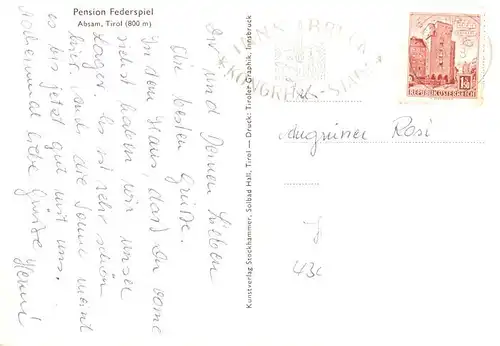 Pension Federspiel
Absam, Tirol (800 m)
Dir und Deinen Lieben
die besten Grüße.
In dem Haus, das Du vorne
siehst haben wir unser
Lager. Es ist sehr schön
hier. Und die Sonne meint
es bis jetzt gut mit uns.
Nocheinmal liebe Grüße Henni
Kunstverlag Stockhammer, Solbad Hall, Tirol — Druck: Tiroler Graphik, Innsbruck
INNSBRUCK
KONGRESS-STADT
REPUBLIK ÖSTERREICH
Rosi